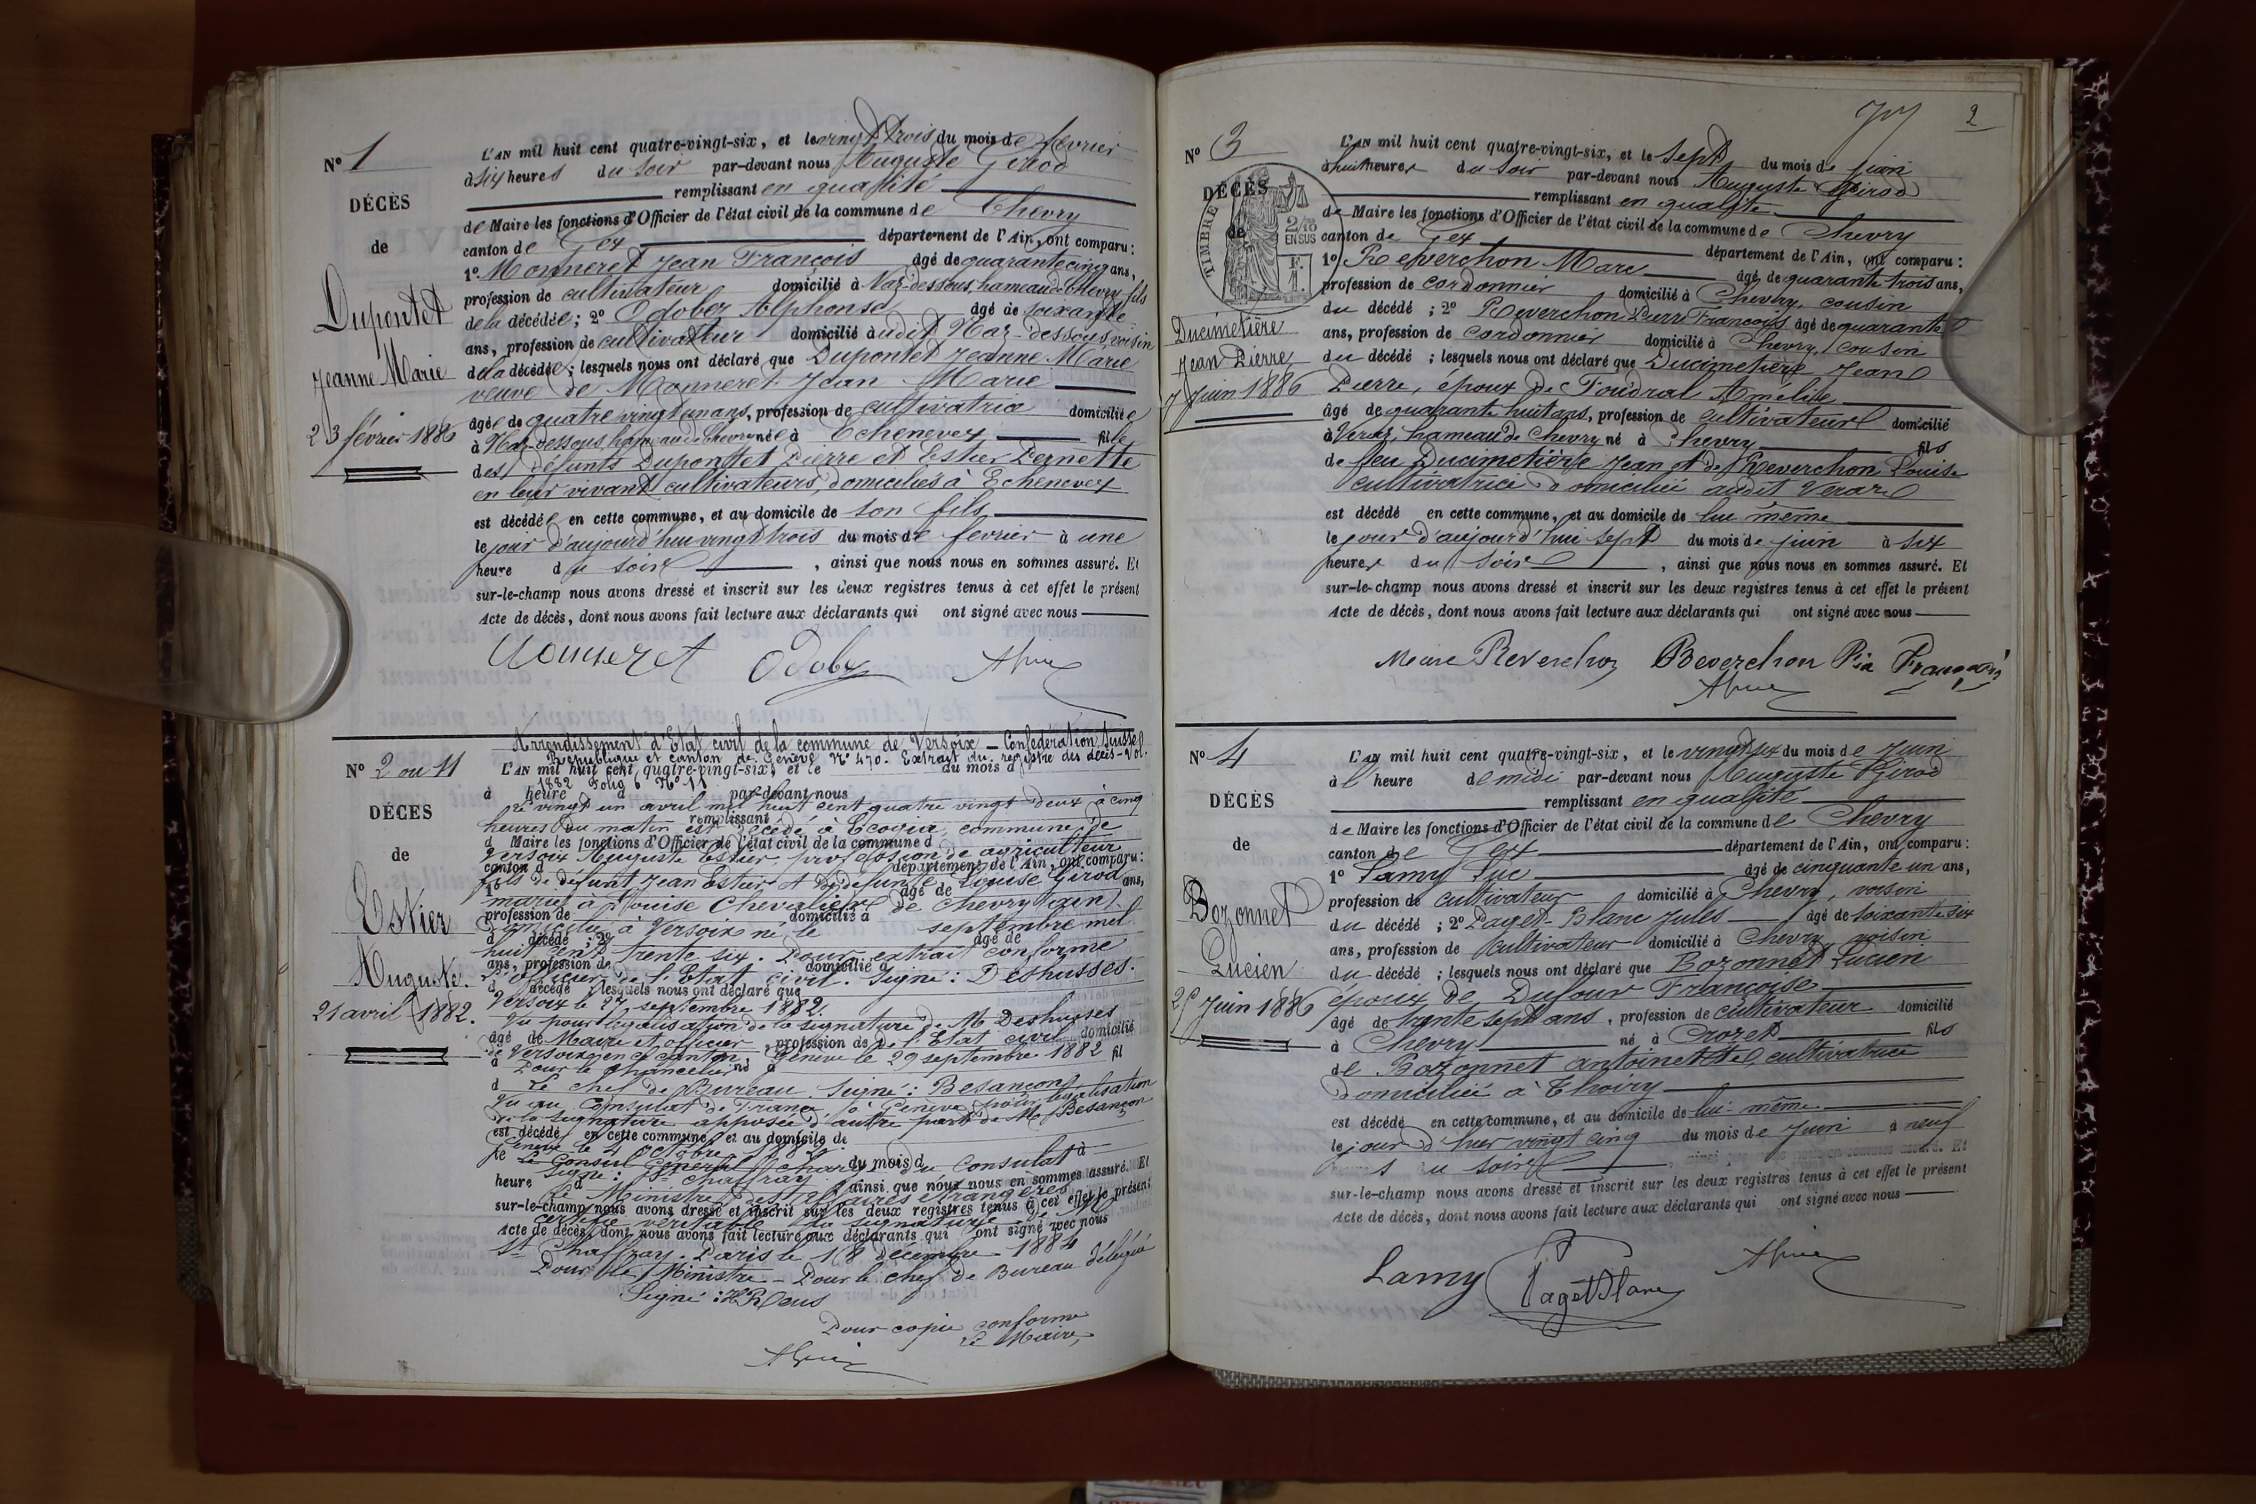 N° 1
DÉCÈS
de
Dupontet
Jeanne Marie
23 février 1886
L'AN mil huit cent quatre-vingt-six, et le vingt trois du mois de février
à six heures du soir par-devant nous Auguste Girod
remplissant en qualité
de Maire les fonctions d'Officier de l'état civil de la commune de Chevry
canton de Gex département de l'Ain, ont comparu :
1° Monneret Jean François âgé de quarante cinq ans,
profession de cultivateur domicilié à Naz-dessous, hameau de Chevry, fils
de la décédée ; 2° Odobez Alphonse âgé de soixante
ans, profession de cultivateur domicilié à udit Naz-dessous, voisin
de la décédée ; lesquels nous ont déclaré que Dupontet Jeanne Marie
veuve de Monneret Jean Marie
âgée de quatre vingt un ans, profession de cultivatrice domiciliée
à Naz-dessous, hameau de Chevry née à Echenevex fille
des défunts Dupontet Pierre et Estier Pernette
en leur vivant cultivateurs, domiciliés à Echenevex
est décédée en cette commune, et au domicile de son fils
le jour d'aujourd'hui vingt trois du mois de février à une
heure du soir , ainsi que nous nous en sommes assuré. Et
sur-le-champ nous avons dressé et inscrit sur les deux registres tenus à cet effet le présent
Acte de décès, dont nous avons fait lecture aux déclarants qui ont signé avec nous
Monneret Odobez
N° 2 ou 11
DÉCÈS
de
Estier
Auguste.
21 avril 1882.
Arrondissement d'Etat civil de la commune de Versoix — Confédération Suisse
République et canton de Genève N° 470. Extrait du registre des décès - Vol.
L'AN mil huit cent quatre-vingt-six, et le du mois d
1882 Folio 6 N° 11
à heure d par-devant nous
Le vingt un avril mil huit cent quatre vingt deux à cinq
remplissant
heures du matin est décédé à Ecogia, commune de
d Maire les fonctions d'Officier de l'état civil de la commune d
Versoix Auguste Estier, profession de agriculteur
canton d département de l'Ain, ont comparu :
fils de défunt Jean Estier et de défunte Louise Girod
1° âgé de ans,
marié à Louise Chevalier de Chevry (Ain)
profession de domicilié à
domicilié à Versoix né le septembre mil
d décédé ; 2° âgé de
huit cent trente six. Pour extrait conforme
ans, profession de domicilié à
L'officier de l'Etat civil. Signé : Deshusses.
d décédé lesquels nous ont déclaré que
Versoix le 27 septembre 1882.
Vu pour légalisation de la signature de M Deshusses
âgé de profession de domicilié
Maire et officier de l'Etat civil
de Versoix en ce canton. Genève le 29 septembre 1882
à né à fil
Pour le chancelier
d Le chef de Bureau. Signé : Besançon
Vu au Consulat de France à Genève pour légalisation
de la signature apposée d'autre part de M Besançon
est décédé en cette commune, et au domicile de
Genève le 4 octobre 1882.
le du mois d à
Le Consul Général chargé du Consulat
Signé : St Chaffray
heure d ainsi que nous nous en sommes assuré. Et
Le Ministre des Affaires étrangères
sur-le-champ nous avons dressé et inscrit sur les deux registres tenus à cet effet le présent
certifie véritable la signature de M
Acte de décès, dont nous avons fait lecture aux déclarants qui ont signé avec nous
St Chaffray. Paris le 18 décembre 1884
Pour le Ministre - Pour le chef de Bureau délégué
Pour copie conforme
Le Maire,
2
N° 3
DÉCÈS
de
TIMBRE
2/10
EN SUS
Ducimetière
Jean Pierre
7 Juin 1886
L'AN mil huit cent quatre-vingt-six, et le sept du mois de juin
à huit heures du soir par-devant nous Auguste Girod
remplissant en qualité
de Maire les fonctions d'Officier de l'état civil de la commune de Chevry
canton de Gex département de l'Ain, ont comparu :
1° Reverchon Marc âgé de quarante trois ans,
profession de cordonnier domicilié à Chevry, cousin
du décédé ; 2° Reverchon Pierre François âgé de quarante
ans, profession de cordonnier domicilié à Chevry, cousin
du décédé ; lesquels nous ont déclaré que Ducimetière Jean
Pierre, époux de Foudral Amélie
âgé de quarante huit ans, profession de cultivateur domicilié
à Veraz, hameau de Chevry né à Chevry fils
de feu Ducimetière Jean et de Reverchon Louise
cultivatrice domiciliée audit Veraz
est décédé en cette commune, et au domicile de lui même
le jour d'aujourd'hui sept du mois de juin à six
heures du soir , ainsi que nous nous en sommes assuré. Et
sur-le-champ nous avons dressé et inscrit sur les deux registres tenus à cet effet le présent
Acte de décès, dont nous avons fait lecture aux déclarants qui ont signé avec nous
Marc Reverchon Reverchon Pre François
N° 4
DÉCÈS
de
Bozonnet
Lucien
25 Juin 1886
L'AN mil huit cent quatre-vingt-six, et le vingt six du mois de Juin
à l' heure de midi par-devant nous Auguste Girod
remplissant en qualité
de Maire les fonctions d'Officier de l'état civil de la commune de Chevry
canton de Gex département de l'Ain, ont comparu :
1° Lamy Luc âgé de cinquante un ans,
profession de cultivateur domicilié à Chevry, voisin
du décédé ; 2° Paget-Blanc Jules âgé de soixante six
ans, profession de cultivateur domicilié à Chevry, voisin
du décédé ; lesquels nous ont déclaré que Bozonnet Lucien
époux de Dufour Françoise
âgé de trente sept ans, profession de cultivateur domicilié
à Chevry né à Crozet fils
de Bozonnet antoinette, cultivatrice
domiciliée à Thoiry
est décédé en cette commune, et au domicile de lui-même
le jour d'hier vingt cinq du mois de Juin à neuf
heures du soir , ainsi que nous nous en sommes assuré. Et
sur-le-champ nous avons dressé et inscrit sur les deux registres tenus à cet effet le présent
Acte de décès, dont nous avons fait lecture aux déclarants qui ont signé avec nous
Lamy Paget Blanc